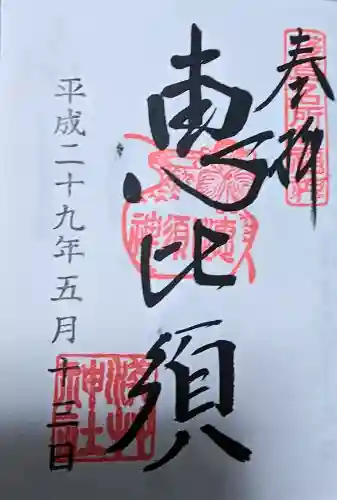 奉拝
恵比須
平成二十九年五月十三日